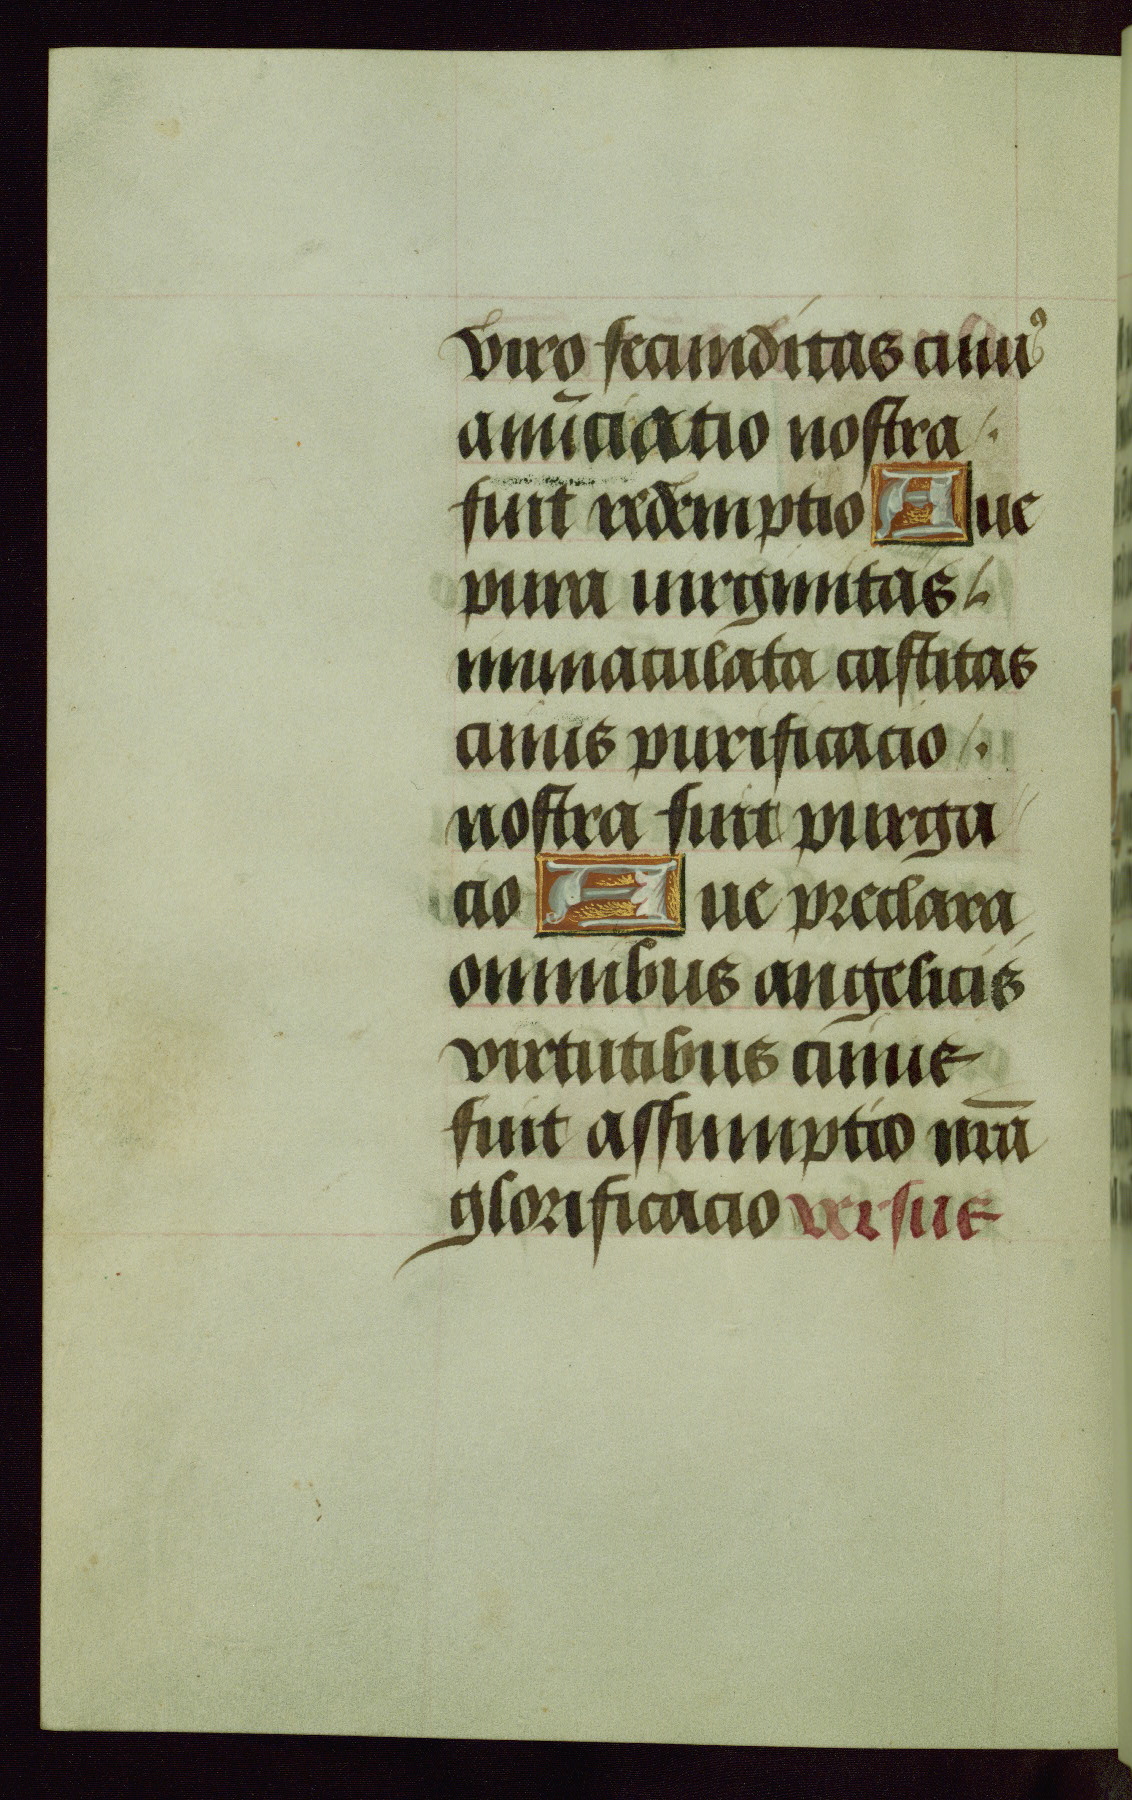 viro fecunditas cuiuꝰ
anūciatio nostra /.
fuit redemptio Aue
pura uirginitas /
immaculata castitas
cuius purificacio /.
nostra fuit purga
cio Aue preclara
omnibus angelicis
virtutibus cuius
fuit assumptio nrā
glorificacio versus